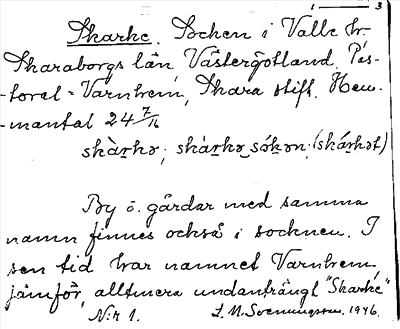 1 — 3
Skarke. Socken i Valle hr.
Skaraborgs län, Västergötland. Pas-
-torat = Varnhem, Skara stift. Hem-
-mantal 24 7/16
skàrkə; skàrkə sókən; (skárkət)
By o. gårdar med samma
namn finnes också i socknen. I
sen tid har namnet Varnhem,
jämför, alltmera undanträngt "Skarke"
N:r 1. 1946.